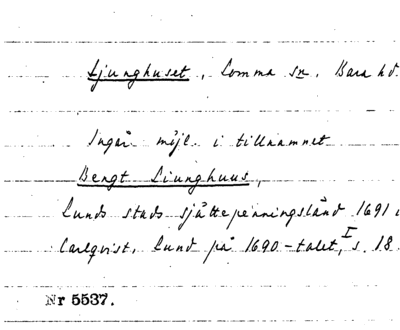 Ljunghuset, Lomma sn. Bara hd.
Ingår möjl. i tillnamnet
Bengt Liunghuus,
Lunds stads sjättepenningsländ 1691 i
Carlqvist, Lund på 1690-talet, I s. 18.
Nr 5537.